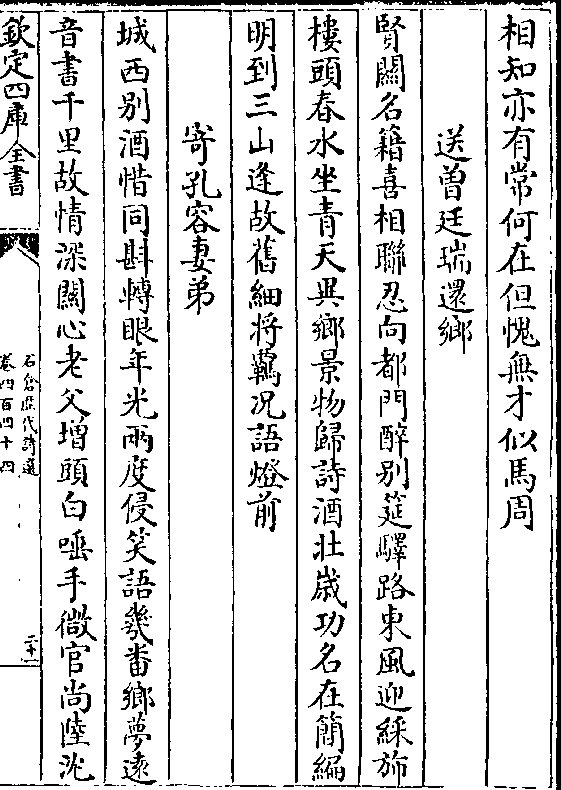 相知亦有常何在但愧無才似馬周
送曾廷瑞還鄉
賢關名籍喜相聯忍向都門醉別筵驛路東風迎綵斾
樓頭春水坐青天異鄉景物歸詩酒壮歲功名在簡編
明到三山逢故舊細将羈况語燈前
寄孔容妻弟
城西别酒惜同斟轉眼年光兩度侵笑語幾畨鄉夢逺
音書千里故情深關心老父増頭白唾手微官尚陸沈
欽定四庫全書
石倉歴代詩選
卷四百四十四
二十一